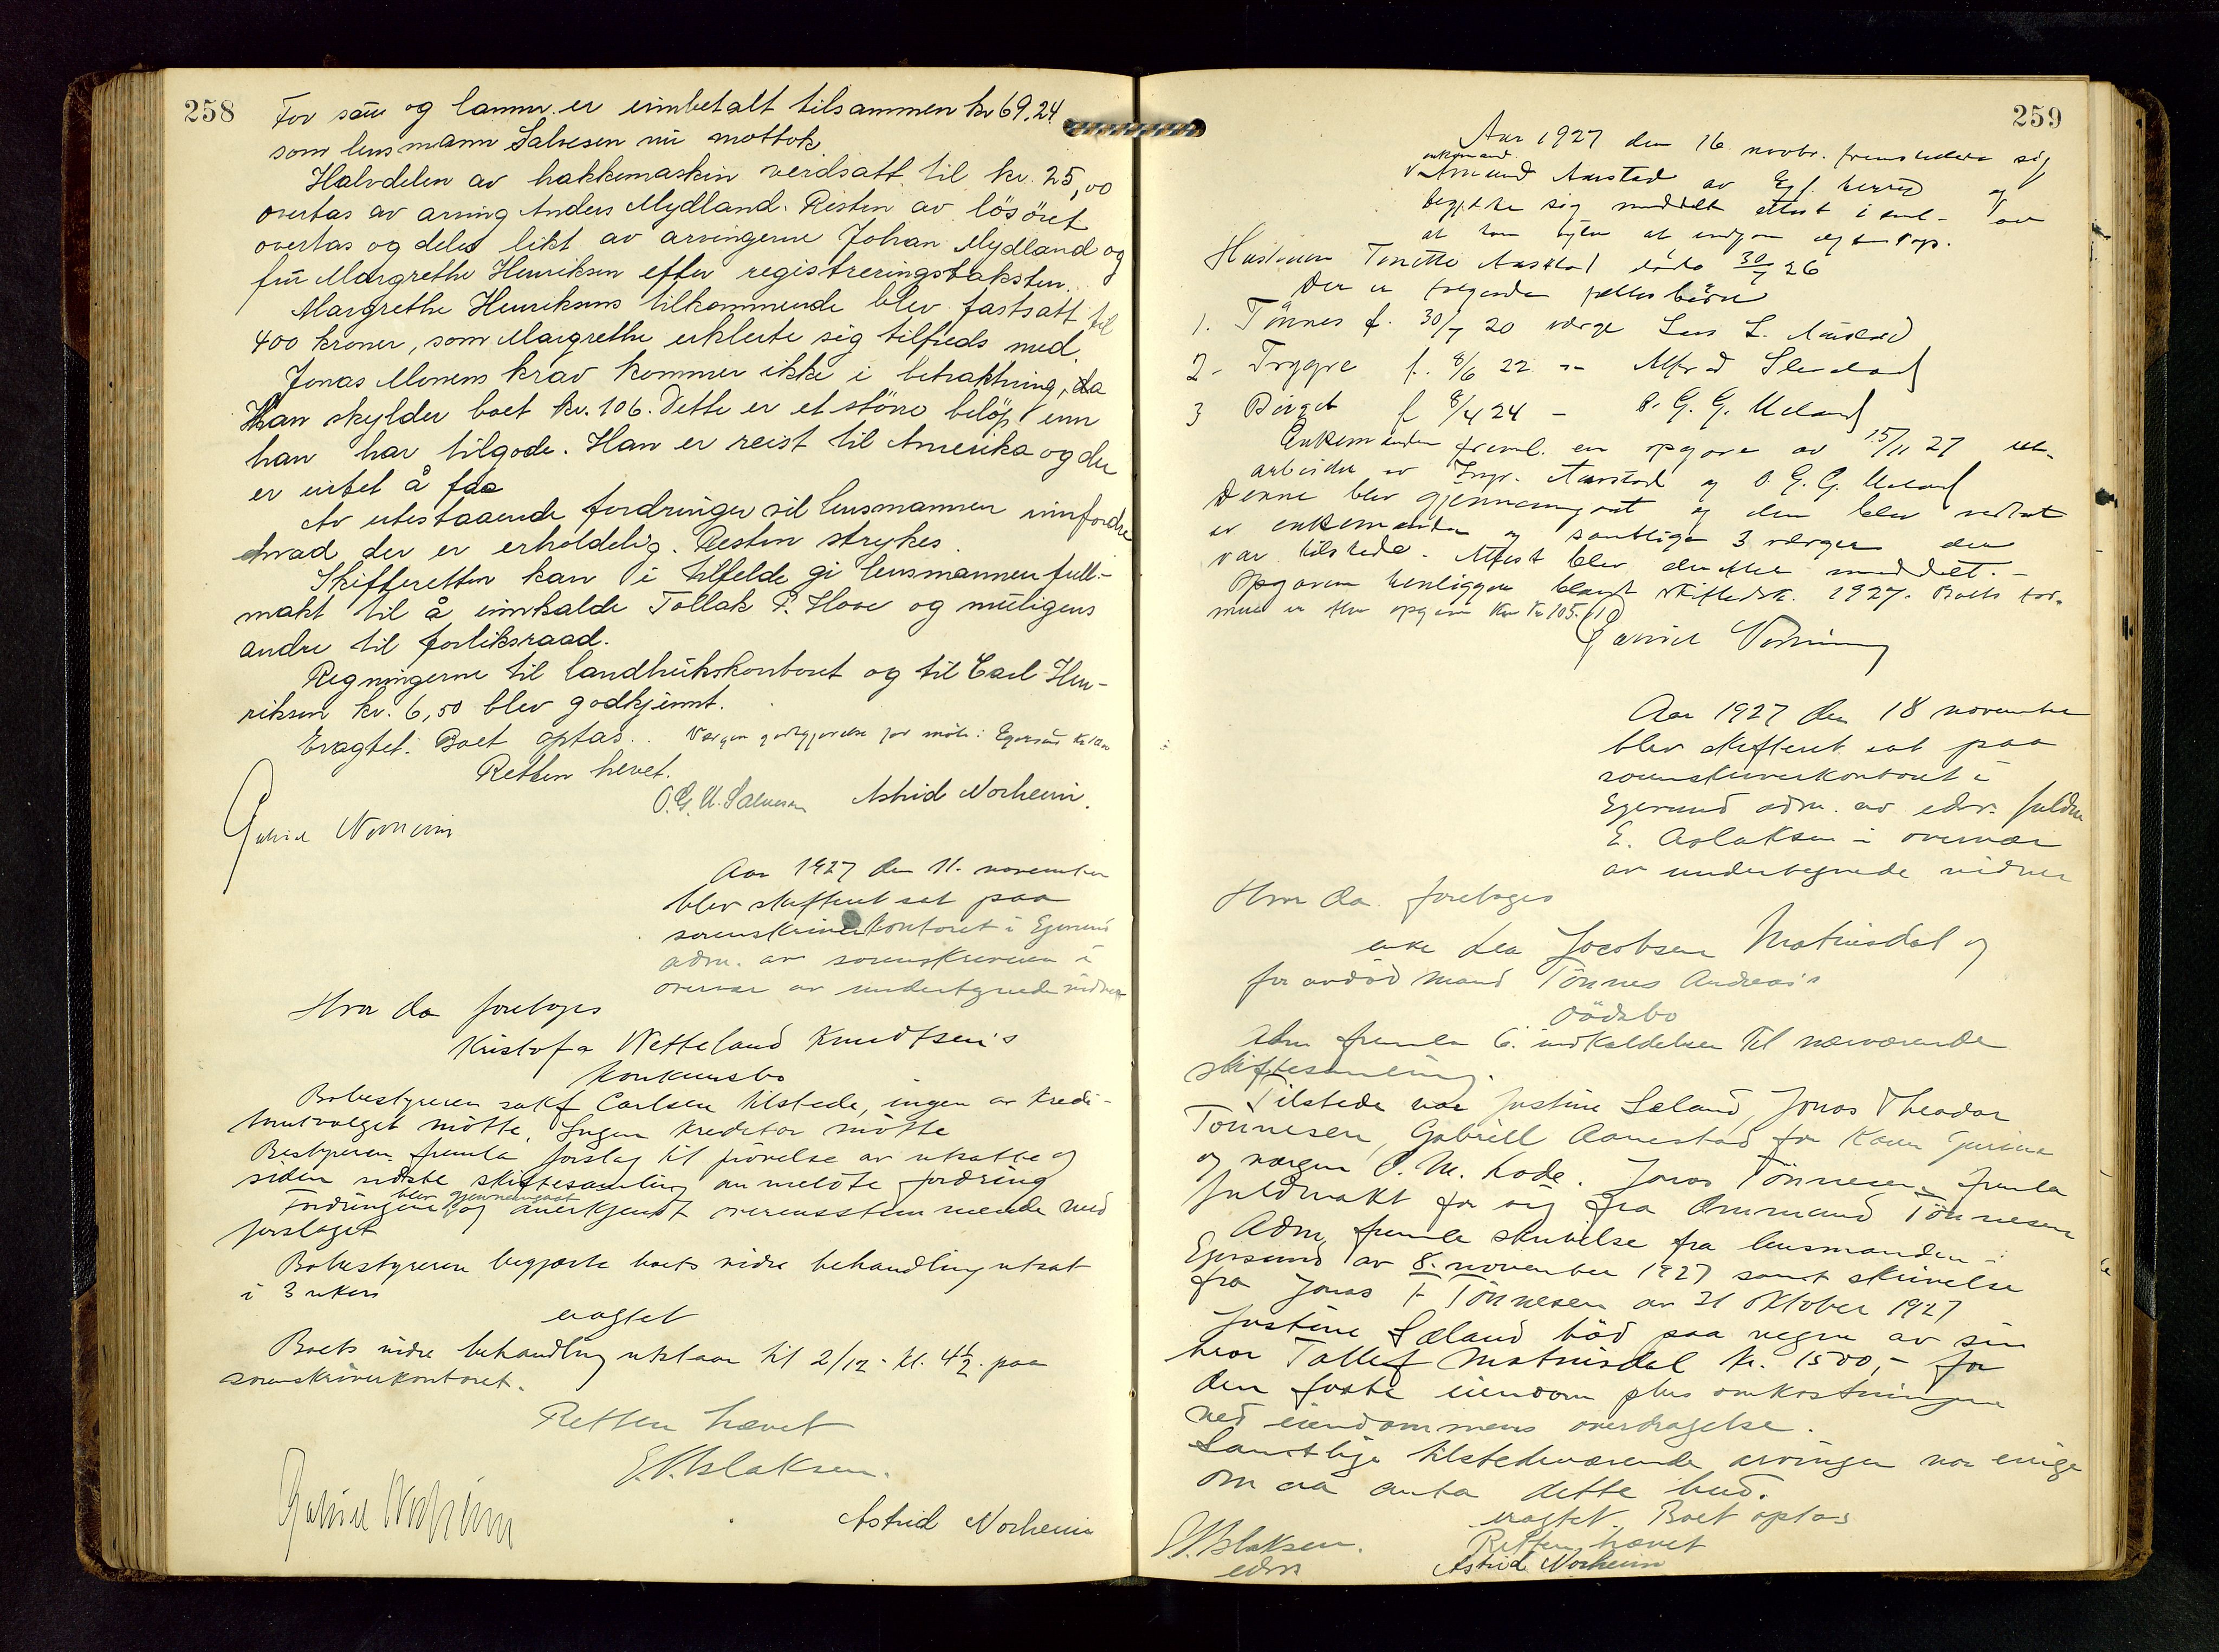 258
For sau og lamm er innbetalt tilsammen kr 69.24
som lensmann Salvesen nu mottok
Halvdelen av hakkemaskin verdsatt til kr. 25,00
overtas av arving Anders Mydland. Resten av lösöret
overtas og deles likt av arvingerne Johan Mydland og
fru Margrethe Henriksen efter registreringstaksten.
Margrethe Henriksens tilkommende blev fastsatt til
400 kroner, som Margrethe erklerte sig tilfreds med.
Jonas Monens krav kommer ikke i betraktning, da
Han skylder boet kr. 106. Dette er et större belöp enn
han har tilgode. Han er reist til Amerika og der
er intet å faa
Av utestaaende fordringer vil lensmannen innfordre
hvad der er erholdelig. Resten strykes.
Skifteretten kan i tilfelde gi lensmannen full-
makt til å innkalde Tollak P. Hove og muligens
andre til forliksraad.
Regningerne til landbrukskontoret og til Carl Hen-
riksen kr. 6,50 blev godkjennt.
Eragtet. Boet optas. Vergen godtgjörelse for möte i Egersund
Retten hevet.
O. G. U. Salvesen Astrid Norheim.
Gabriel Norheim
Aar 1927 den 11. november
blev skifteret sat paa
sorenskriverkontoret i Egersund
adm. av sorenskriveren i
overvær av undertegnede vidner
Hvor da foretoges
Kristofa Netteland Knudtsen's
Konkursbo
Bobestyreren sakf Carlsen tilstede, ingen av kredi-
torutvalget mötte. Ingen kreditor mötte
Bestyreren fremla forslag til prövelse av utsatte og
siden sidste skiftesamling anmeldte fordring
Fordringene blev gjennemgaat og anerkjendt overensstemmende med
forslaget
Bobestyreren begjærte boets vidre behandling utsat
i 3 uker
eragtet
Boets vidre behandling utstaar til 2/12 - kl. 4½. paa
sorenskriverkontoret.
Retten hævet
E. Aslaksen.
Gabriel Norheim
Astrid Norheim
259
Aar 1927 den 16 novbr. fremstillede sig
enkemand
Aarstad av Egs. herred og
begjærte sig meddelt attest i
at han
Hustruen Tonette Aarstad döde 30/7 26
Der er fölgende fellesbörn
1. Tönnes f. 30/7 20 verge Lars L. Aarstad
2. Trygve f. 8/6 22 — Alfred
3 Birget f 8/4 24 — O. G. G. Ueland
Enkemanden freml. en opgave av 15/11 27 ut-
arbeidet av Ingv. Aarstad og O. G. G. Ueland
Denne blev gjennemgaat og den blev vedtat
av enkemanden og samtlige 3 verger der
var tilstede. Attest blev derefter meddelt. -
Opgaven henligger blandt skiftedok. 1927. Boets for-
mue er efter opgaven kr 105.
Gabriel Norheim
Aar 1927 den 18 november
blev skifteret sat paa
sorenskriverkontoret i
Egersund adm. av edsv. fuldm
E. Aslaksen i overvær
av undertegnede vidner
Hvor da foretoges
enke Lea Jacobsen Motrusdal og
for avdöd mand Tönnes Andreas's
Dödsbo
Adm fremla 6. indkaldelsen til nærværende
skiftesamling.
Tilstede var Justine Sæland, Jonas Theodor
Tönnesen, Gabriell Aanestad for Karen Gurine
og vergen P. M. Lode. Jonas Tönnesen fremla
fuldmakt for sig fra Ommund Tönnesen
Adm. fremla skrivelse fra lensmanden i
Egersund av 8. november 1927 samt skrivelse
fra Jonas T. Tönnesen av 31 Oktober 1927
Justine Sæland böd paa vegne av sin
bror Tollef Motrusdal kr. 1500,- for
den faste eiendom plus omkostningene
ved eiendommens overdragelse.
Samtlige tilstedeværende arvinger var enige
om aa anta dette bud.
eragtet. Boet optas
Retten hævet
E. Aslaksen.
edsv
Astrid Norheim